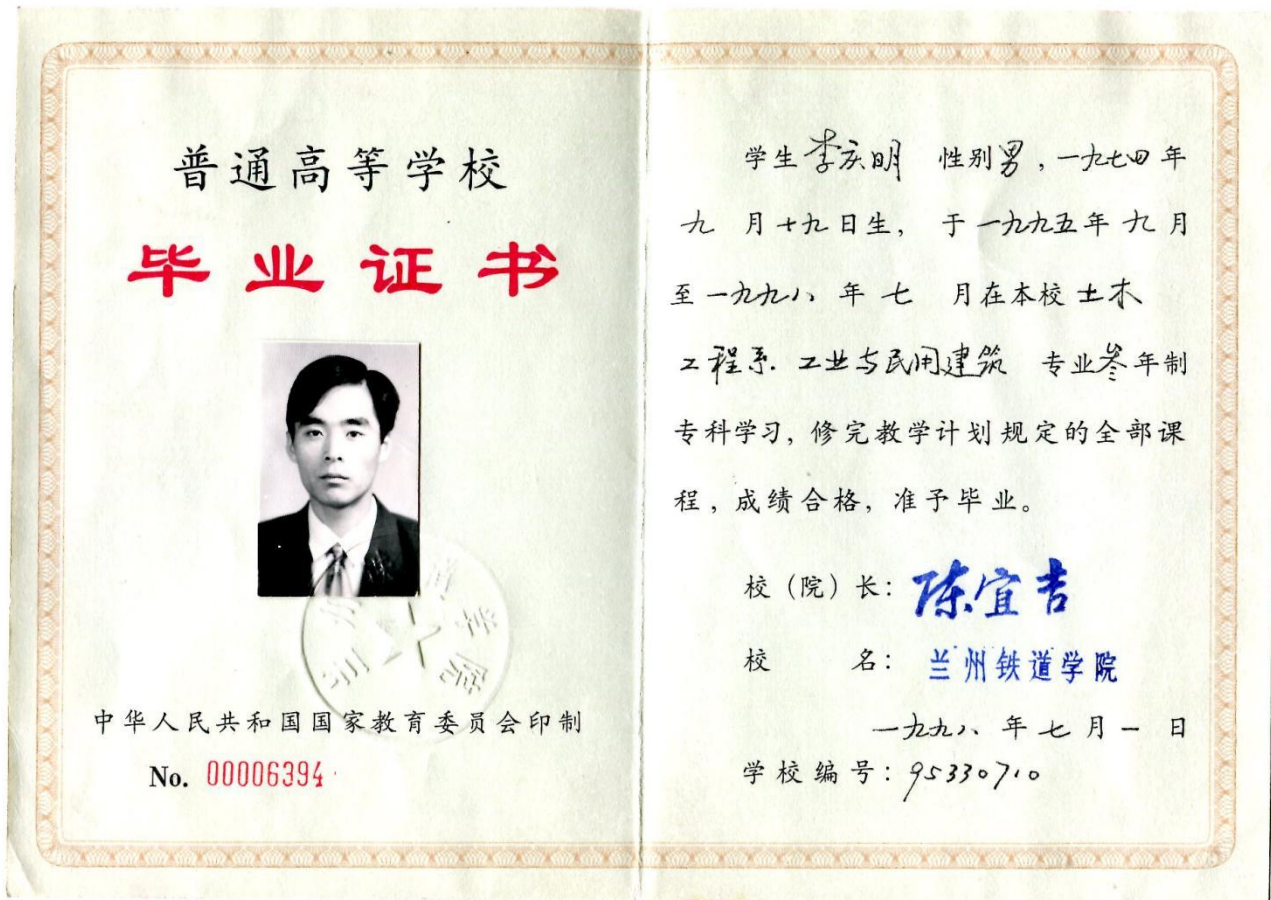 普通高等学校
毕业证书
中华人民共和国国家教育委员会印制
No. 00006394
学生李庆明 性别男，一九七四年
九 月十九日生， 于一九九五年九月
至一九九八年七 月在本校土木
工程系.工业与民用建筑 专业叁年制
专科学习，修完教学计划规定的全部课
程，成绩合格，准予毕业。
校（院）长：陈宜吉
校 名：兰州铁道学院
一九九八年七月一日
学校编号：95330710